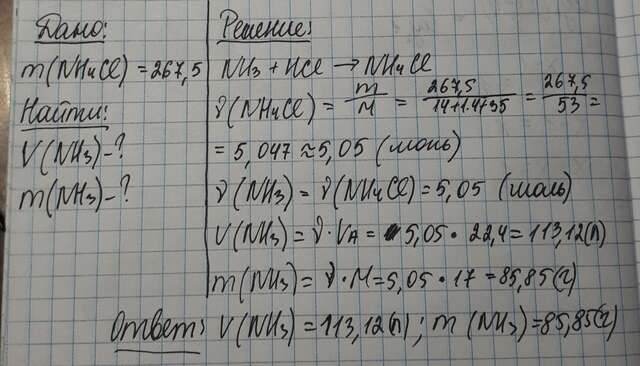 Дано:
m(NH4Cl) = 267,5
Найти:
V(NH3)-?
m(NH3)-?
Решение:
NH3 + HCl → NH4Cl
ν(NH4Cl) = m/M = 267,5/14+1·4+35 = 267,5/53 =
= 5,047 ≈ 5,05 (моль)
ν(NH3) = ν(NH4Cl) = 5,05 (моль)
V(NH3) = ν · VA = 5,05 · 22,4 = 113,12(л)
m(NH3) = ν · M = 5,05 · 17 = 85,85(г)
Ответ: V(NH3) = 113,12(л); m(NH3) = 85,85(г)